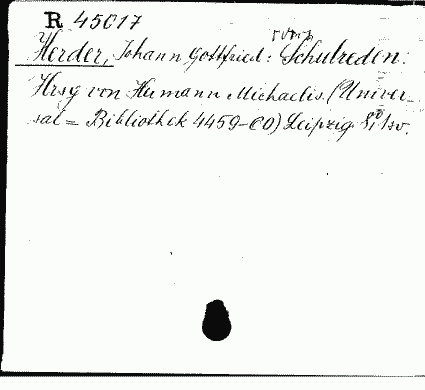 R 45017
Herder, Johann Gottfried: Schulreden.
Hrsg von Hermann Michaelis. (Univer-
sal = Bibliothek 4459-60) Leipzig 8°,